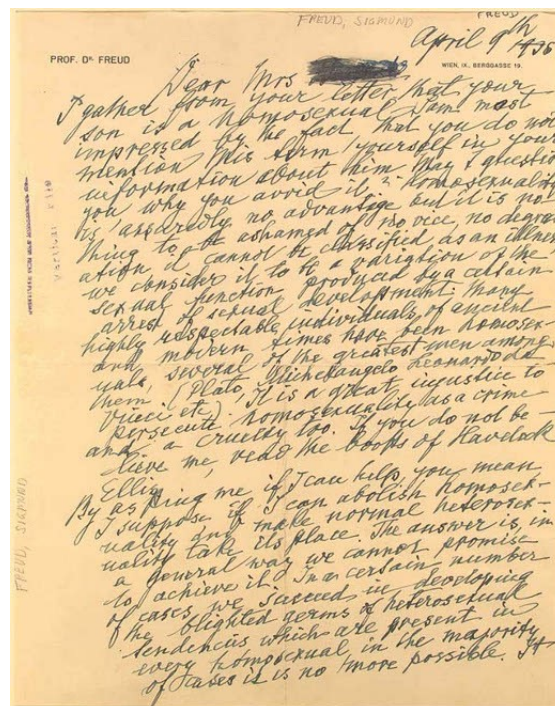 FREUD
FREUD, SIGMUND
April 9th 1935
PROF. DR. FREUD
WIEN, IX., BERGGASSE 19.
Dear Mrs
I gather from your letter that your
son is a homosexual. I am most
impressed by the fact, that you do not
mention this term yourself in your
information about him. May I question
you why you avoid it? Homosexuality
is assuredly no advantage but it is no-
thing to be ashamed of, no vice, no degrad-
ation, it cannot be classified as an illness;
we consider it to be a variation of the
sexual function produced by a certain
arrest of sexual development. Many
highly respectable individuals of ancient
and modern times have been homosex-
uals, several of the greatest men among
them (Plato, Michelangelo, Leonardo da
Vinci etc). It is a great injustice to
persecute homosexuality as a crime
and a cruelty too. If you do not be-
lieve me, read the books of Havelock
Ellis.
By asking me if I can help, you mean,
I suppose, if I can abolish homosex-
uality and make normal heterosex-
uality take its place. The answer is, in
a general way, we cannot promise
to achieve it. In a certain number
of cases we succeed in developing
the blighted germs of heterosexual
tendencies which are present in
every homosexual, in the majority
of cases it is no more possible. It
FREUD, SIGMUND